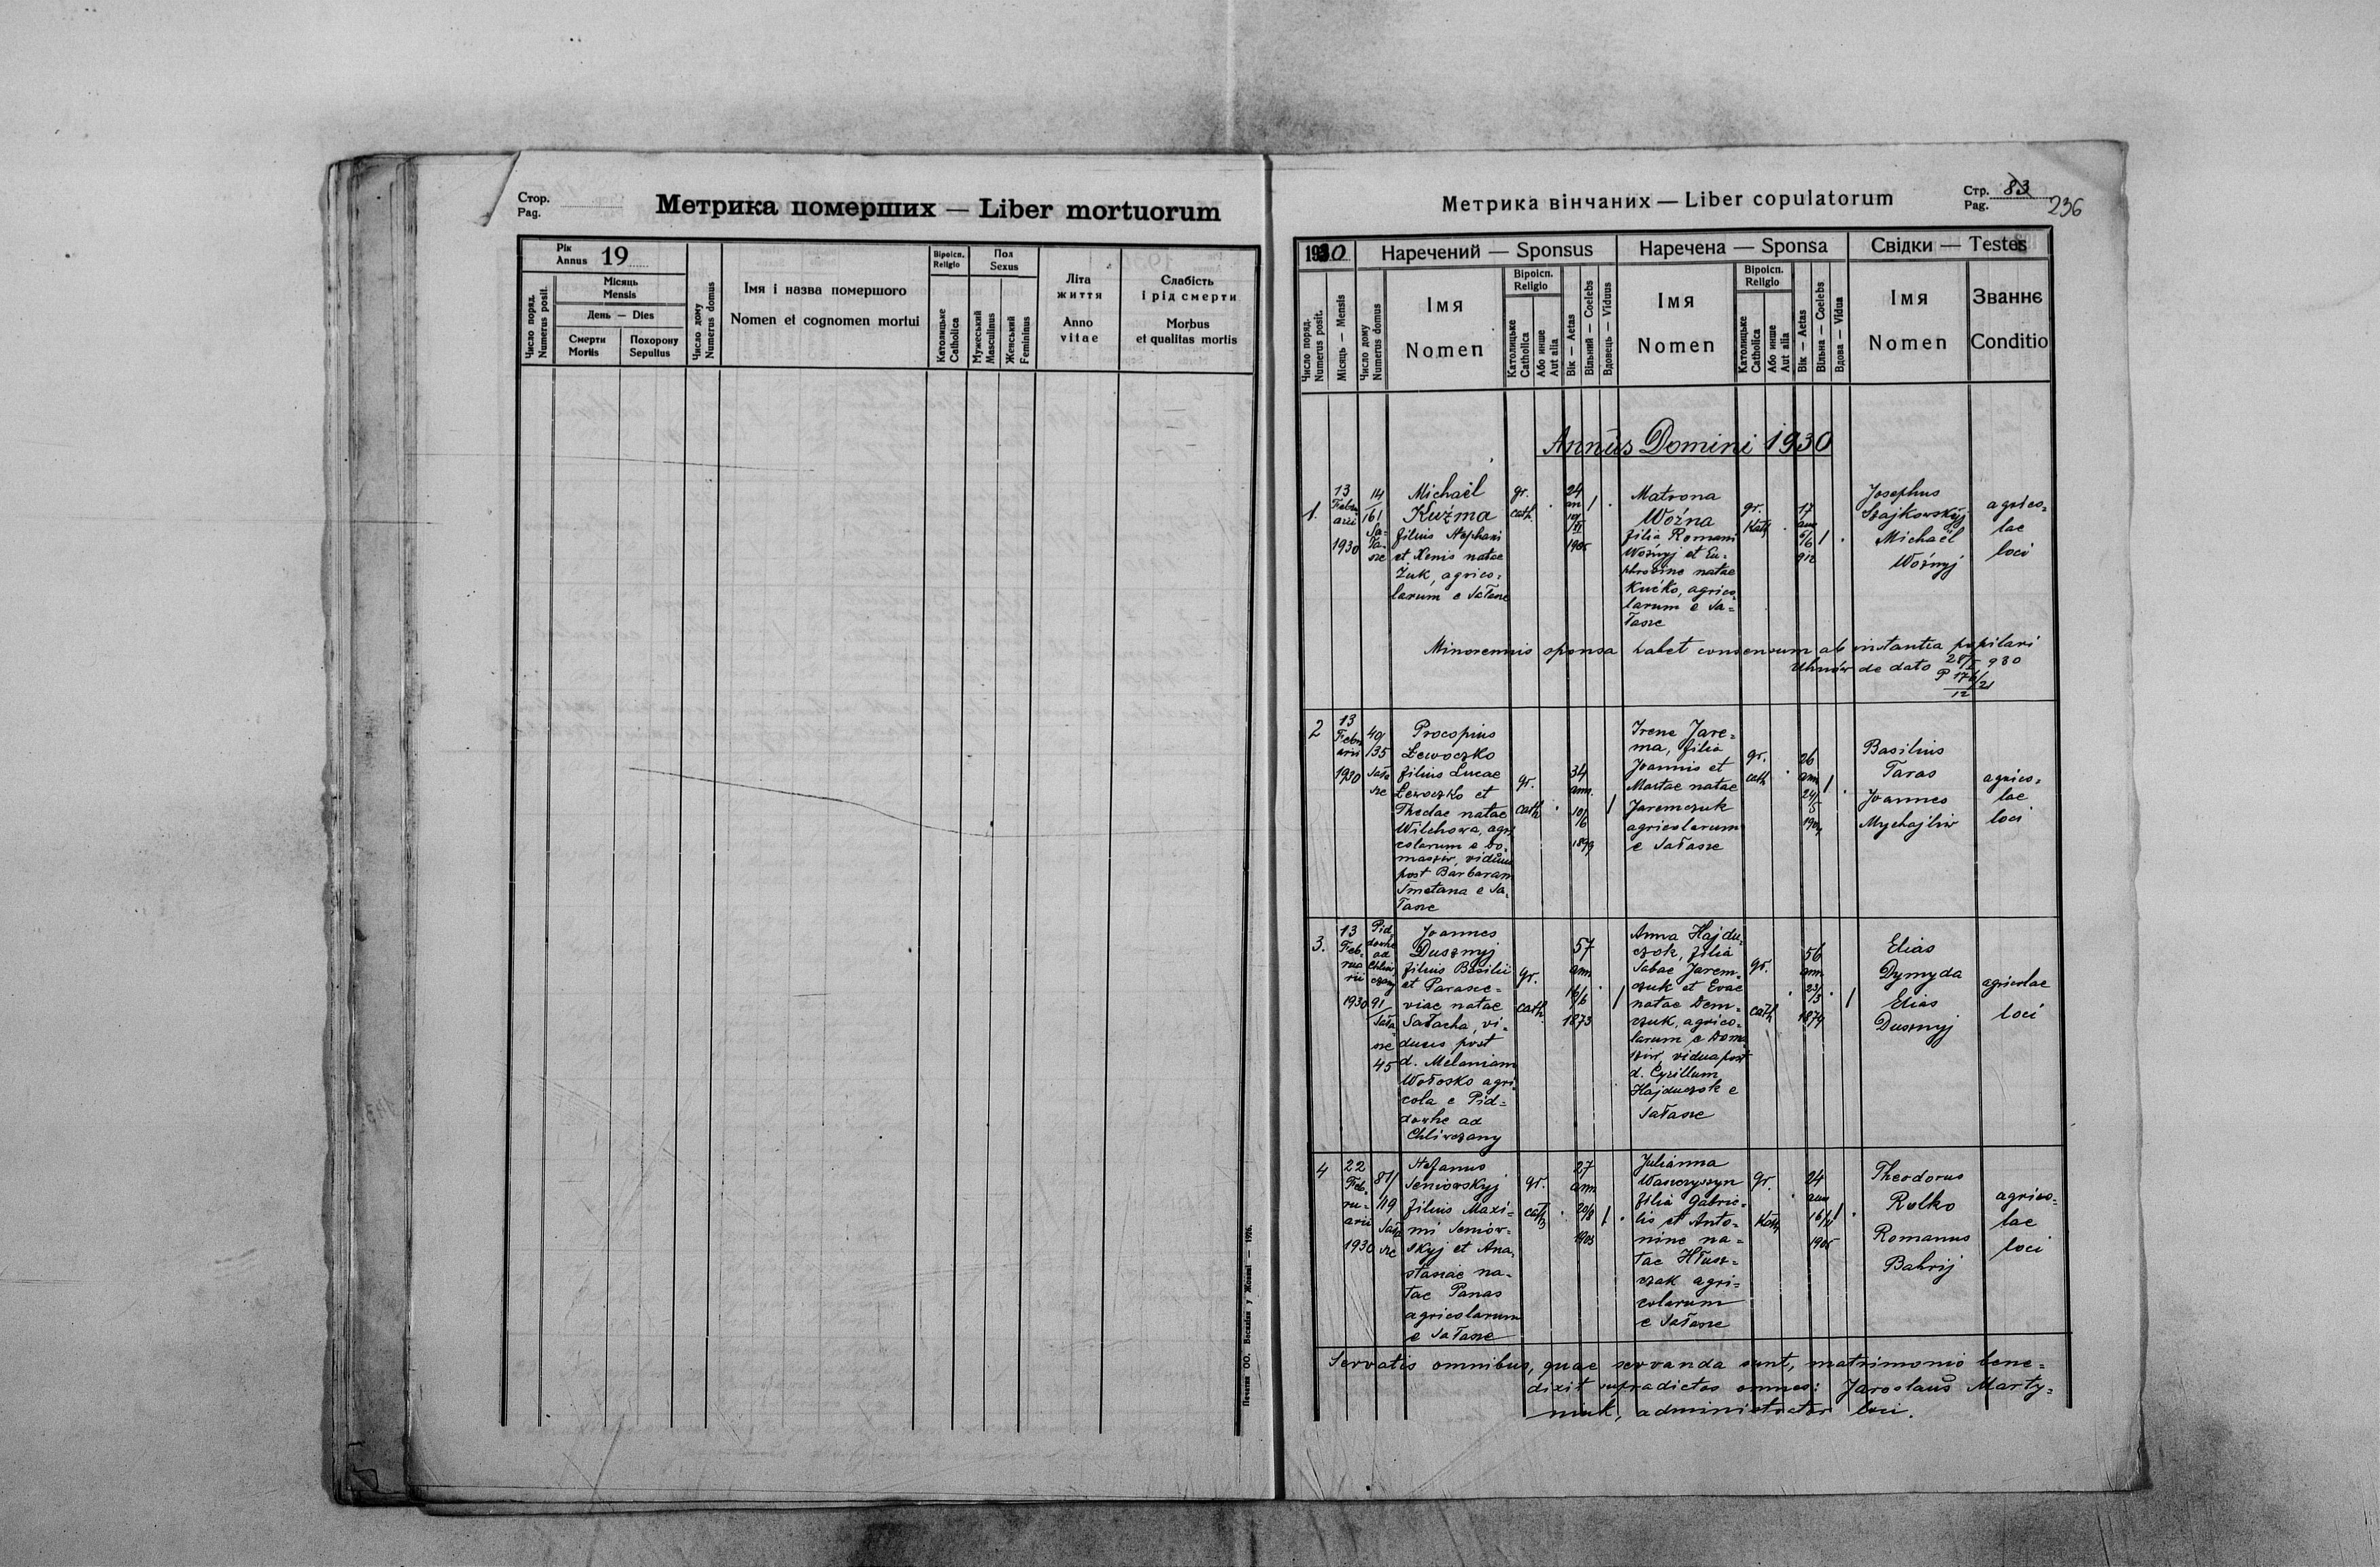 Стор.
Pag.
Метрика померших — Liber mortuorum
Рік
Annus 19
Число поряд.
Numerus posit.
Місяць
Mensis
День — Dies
Смерти
Mortis
Похорону
Sepultus
Число дому
Numerus domus
Імя і назва помершого
Nomen et cognomen mortui
Віроісп.
Religio
Католицьке
Catholica
Пол
Sexus
Мужеський
Masculinus
Женський
Femininus
Літа
життя
Anno
vitae
Слабість
і рід смерти
Morbus
et qualitas mortis
Печатня ОО. Василіян у Жовкві — 1926.
Метрика вінчаних — Liber copulatorum
Стр.
Pag.
83
236
1930
Наречений — Sponsus
Наречена — Sponsa
Свідки — Testes
Число поряд.
Numerus posit.
Місяць — Mensis
Число дому
Numerus domus
Імя
Nomen
Віроісп.
Religio
Католицьке
Catholica
Або инше
Aut alia
Вік — Aetas
Вільний — Coelebs
Вдовець — Viduus
Імя
Nomen
Віроісп.
Religio
Католицьке
Catholica
Або инше
Aut alia
Вік — Aetas
Вільна — Coelebs
Вдова — Vidua
Імя
Nomen
Званнє
Conditio
Annus Domini 1930
1.
13
Febru
arii
1930
14
161
Sa=
ła=
sze
Michaël
Kuźma
filius Stephani
et Xenis natae
Żuk, agrico=
larum e Sałasze
gr.
cath.
24
an
1905
Matrona
Woźna
filia Romani
Woźnyj et Eu=
phrosine natae
Kućko, agrico
larum e Sa=
łasze
gr.
Kath
17
ann
6/6
912
Josephus
Szajkowskyj
Michaël
Woźnyj
agrico=
lae
loci
Minorennis sponsa habet consensum ab instantia pupilari
Uhnów de dato 28/I 930
P 176/21
12
2
13
Febru
arii
1930
49
135
Sała
sze
Procopius
Lewoczko
filius Lucae
Lewoczko et
Thedae natae
Wilchowa, agri
colarum e Do=
masziw, viduus
post Barbaram
Smetana e Sa=
łasze
gr.
cath
34
ann.
10/6
1899
Irene Jare=
ma, filia
Joannis et
Martae natae
Jaremczuk
agricolarum
e Sałasze
gr.
cath
26
ann
24/5
1904
Basilius
Taras
Joannes
Mychajliw
agrico=
lae
loci
3.
13
Feb=
rua
rii
1930
Pid=
dowhe
ad
Chliw
czany
91
Sała=
sze
45
Joannes
Dusznyj
filius Basilii
et Parasce=
viae natae
Sałacha, vi=
duus post
d. Melaniam
Wołosko agri
cola e Pid=
dowhe ad
Chliwczany
gr.
cath.
57
ann
16/6
1873
Anna Hajdu=
czok, filia
Sabae Jarem=
czuk et Evae
natae Dem=
czuk, agrico=
larum e Doma
sziw, vidua post
d. Cyrillum
Hajduczok e
Sałasze
gr.
cath
56
ann
23/3
1874
Elias
Dymyda
Elias
Dusznyj
agricolae
loci
4
22
Feb=
ru=
arii
1930
81/
119
Sała
sze
Stefanus
Seniowskyj
filius Maxi=
mi Seniow=
skyj et Ana=
stasiae na=
tae Panas
agricolarum
e Sałasze
gr.
cath
27
ann
20/8
1903
Julianna
Waszczyszyn
filia Gabrie=
lis et Anto=
nine na=
tae Hłusz=
czak agri=
colarum
e Sałasze
gr.
Kath
24
ann
1905
Theodorus
Rolko
Romanus
Bahrij
agrico=
lae
loci
Servatis omnibus, quae servanda sunt, matrimonio bene=
dixit supradictos omnes: Jaroslaus Marty=
niuk, administrator loci.